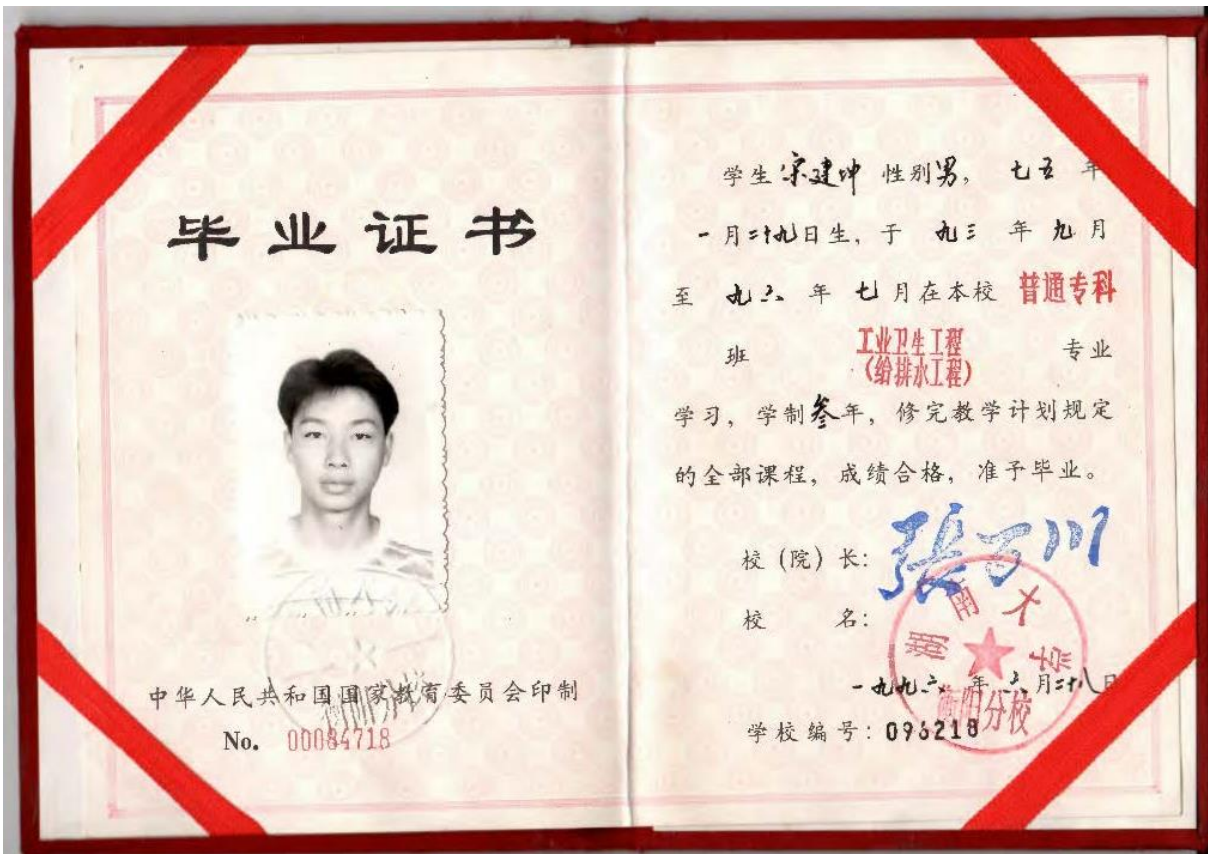 毕业证书
中华人民共和国国家教育委员会印制
No. 00084718
学生 宋建坤 性别男, 七五 年
一月二十九日生, 于 九三 年 九月
至 九六 年 七月在本校 普通专科
班 工业卫生工程 专业
(给排水工程)
学习, 学制叁年, 修完教学计划规定
的全部课程, 成绩合格, 准予毕业。
校 (院) 长: 張万川
校 名:
湖南大学
衡阳分校
一九九六 年 六月二十八日
学校编号: 096218